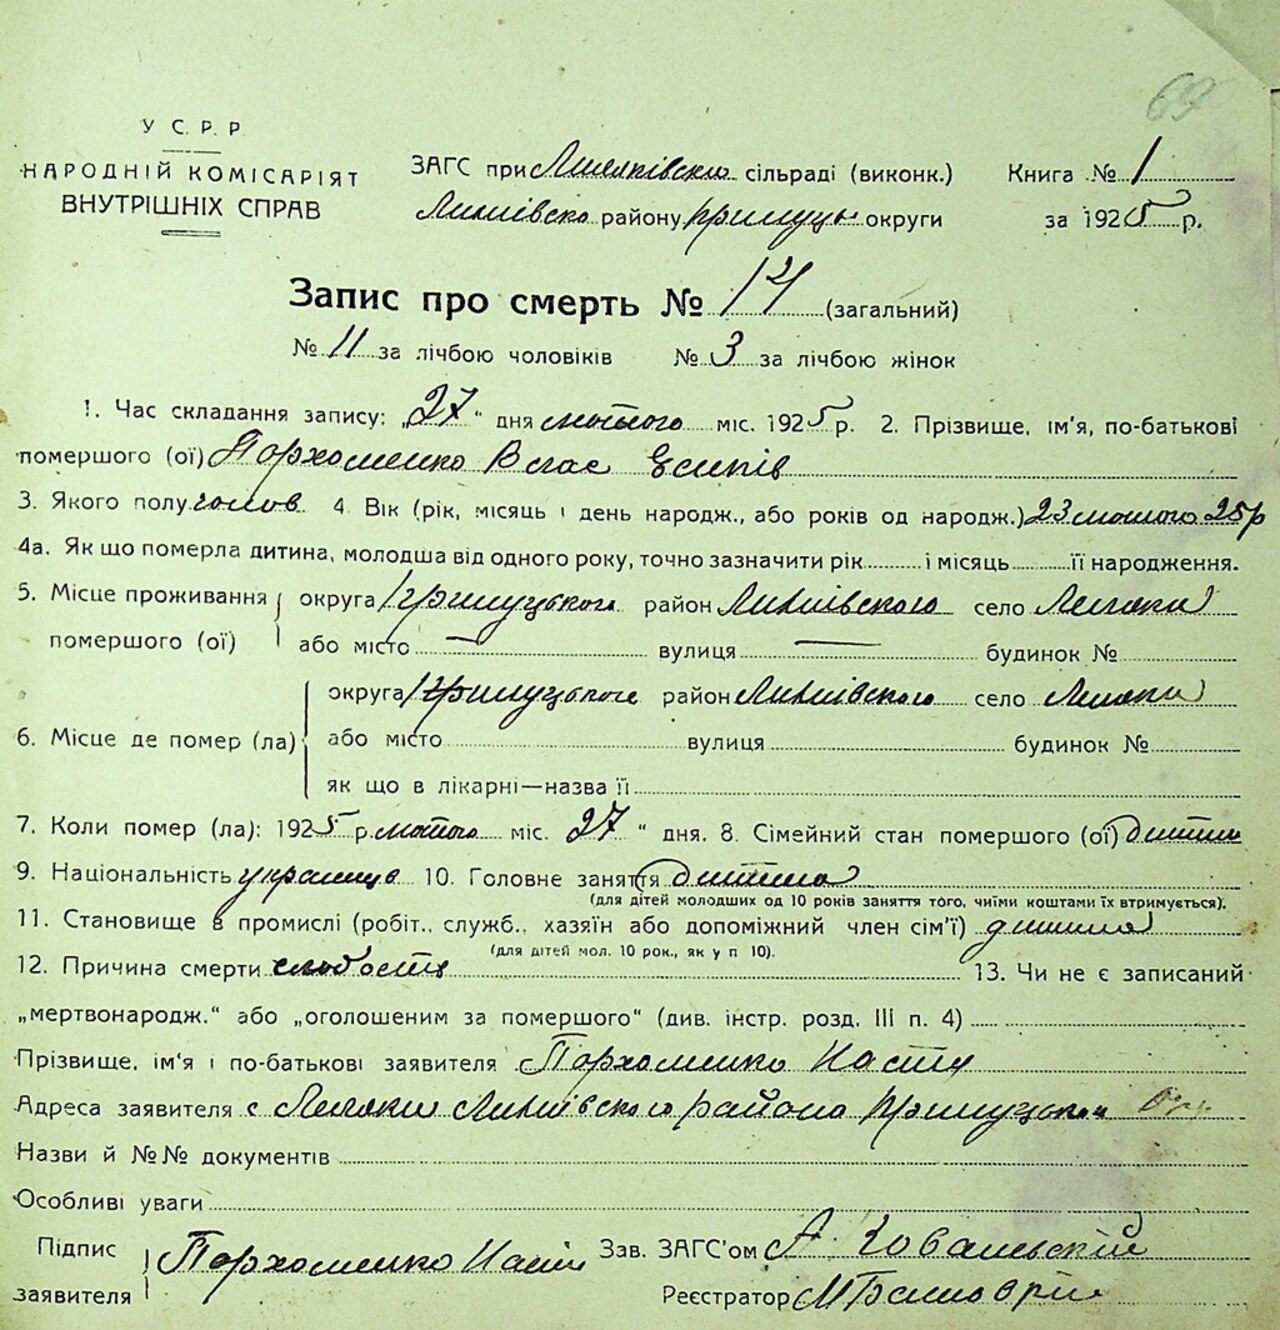 69
У С. Р. Р
НАРОДНІЙ КОМІСАРІЯТ
ВНУТРІШНІХ СПРАВ
ЗАГС при сільраді (виконк.)
району округи
Книга № 1
за 1925 р.
Запис про смерть № 14 (загальний)
№ 11 за лічбою чоловіків № 3 за лічбою жінок
1. Час складання запису: „27" дня лютого міс. 1925 р. 2. Прізвище, ім'я, по-батькові
помершого (ої) Пархоменко Влас Есипів
3. Якого полу чолов. 4. Вік (рік, місяць і день народж., або років од народж.) 23 лютого 25 р
4а. Як що померла дитина, молодша від одного року, точно зазначити рік і місяць її народження.
5. Місце проживання округа Прилуцького район село Леляки
помершого (ої) або місто — вулиця — будинок №
округа Прилуцького район село Леляки
6. Місце де помер (ла) або місто вулиця будинок №
як що в лікарні—назва її
7. Коли помер (ла): 1925 р. лютого міс. 27 " дня. 8. Сімейний стан помершого (ої) дитина
9. Національність українець 10. Головне заняття дитина
(для дітей молодших од 10 років заняття того, чиїми коштами їх втримується).
11. Становище в промислі (робіт., служб., хазяїн або допоміжний член сім'ї) дитина
(для дітей мол. 10 рок., як у п 10).
12. Причина смерти слабость 13. Чи не є записаний
„мертвонародж." або „оголошеним за помершого" (див. інстр. розд. III п. 4)
Прізвище, ім'я і по-батькові заявителя Пархоменко Настя
Адреса заявителя с Леляки района
Назви й №№ документів
Особливі уваги
Підпис заявителя Пархоменко Зав. ЗАГС'ом А. Ковальский
Реєстратор